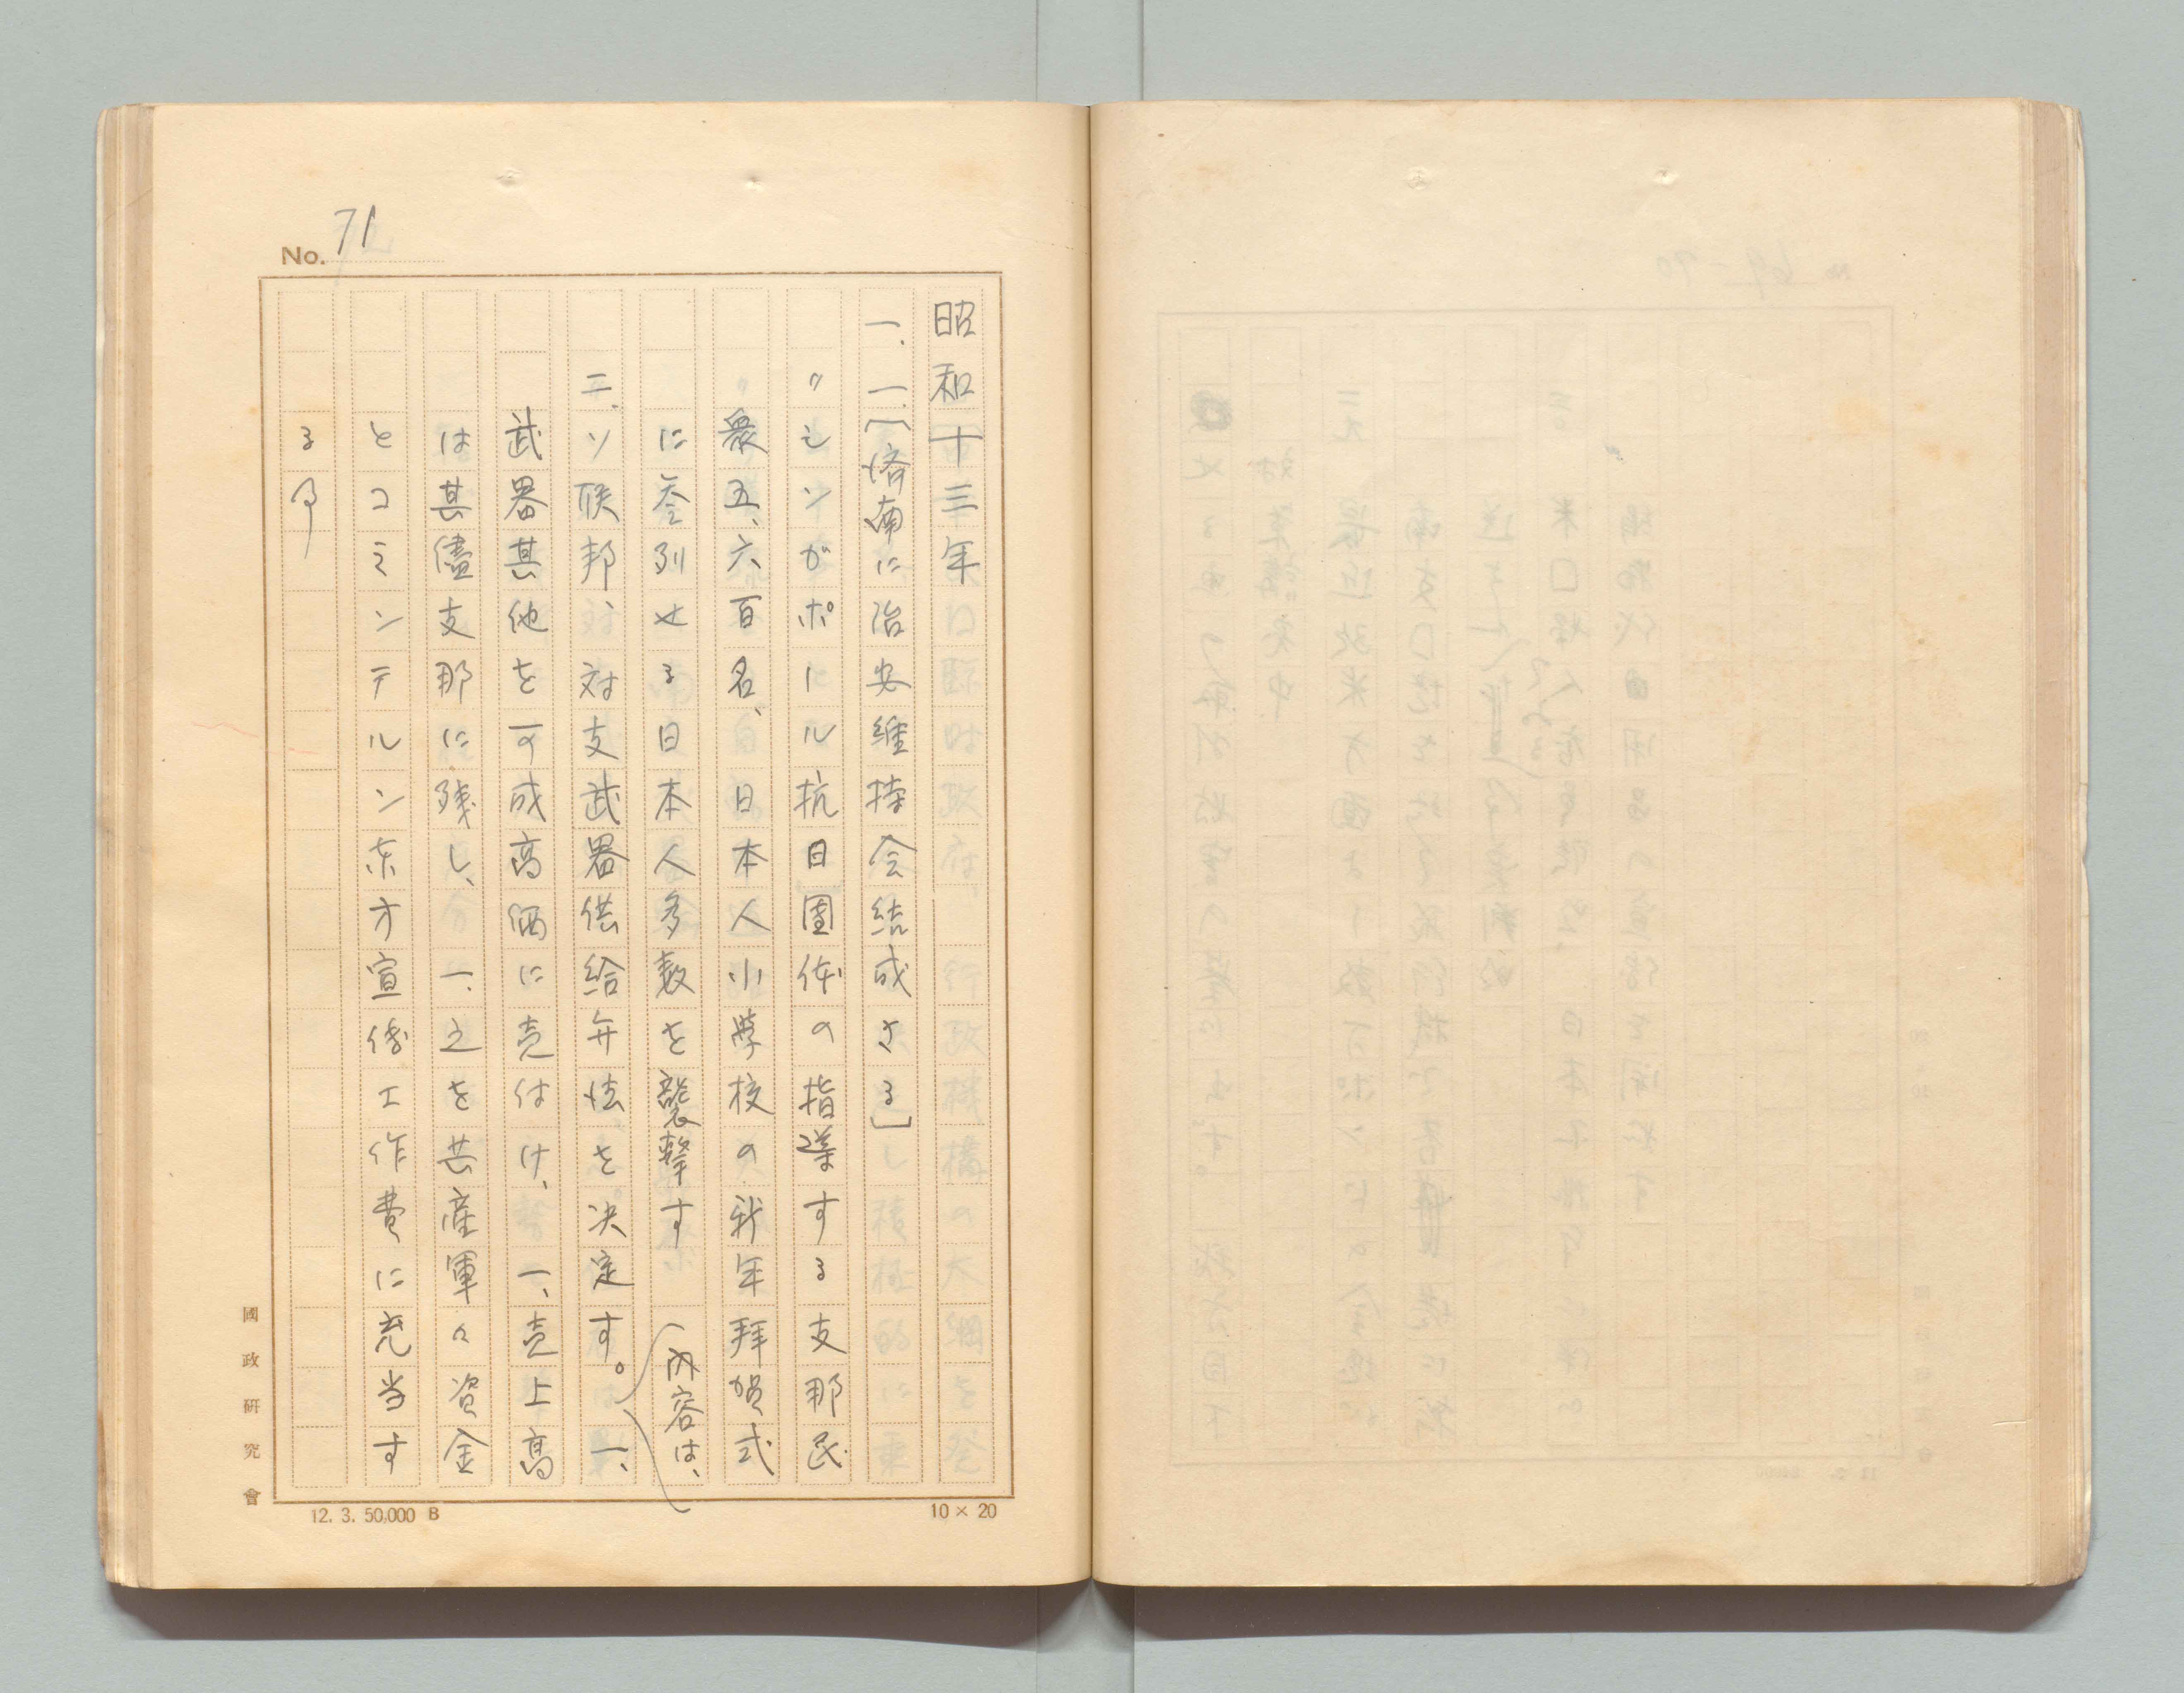 No. 71
昭和十三年
一、一、〔済南に治安維持会結成さる〕
〃シンガポール抗日団体の指導する支那民
衆五、六百名、日本人小学校の新年拝賀式
に参列せる日本人多数を襲撃す
二、ソ联邦、対支武器供給弁法を決定す。（内容は、一、
武器其他を可成高価に売付け、一、売上高
は其儘支那に残し、一、之を共産軍の資金
とコミンテルン東方宣伝工作費に充当す
る
國政研究會
12. 3. 50,000 B
10 × 20